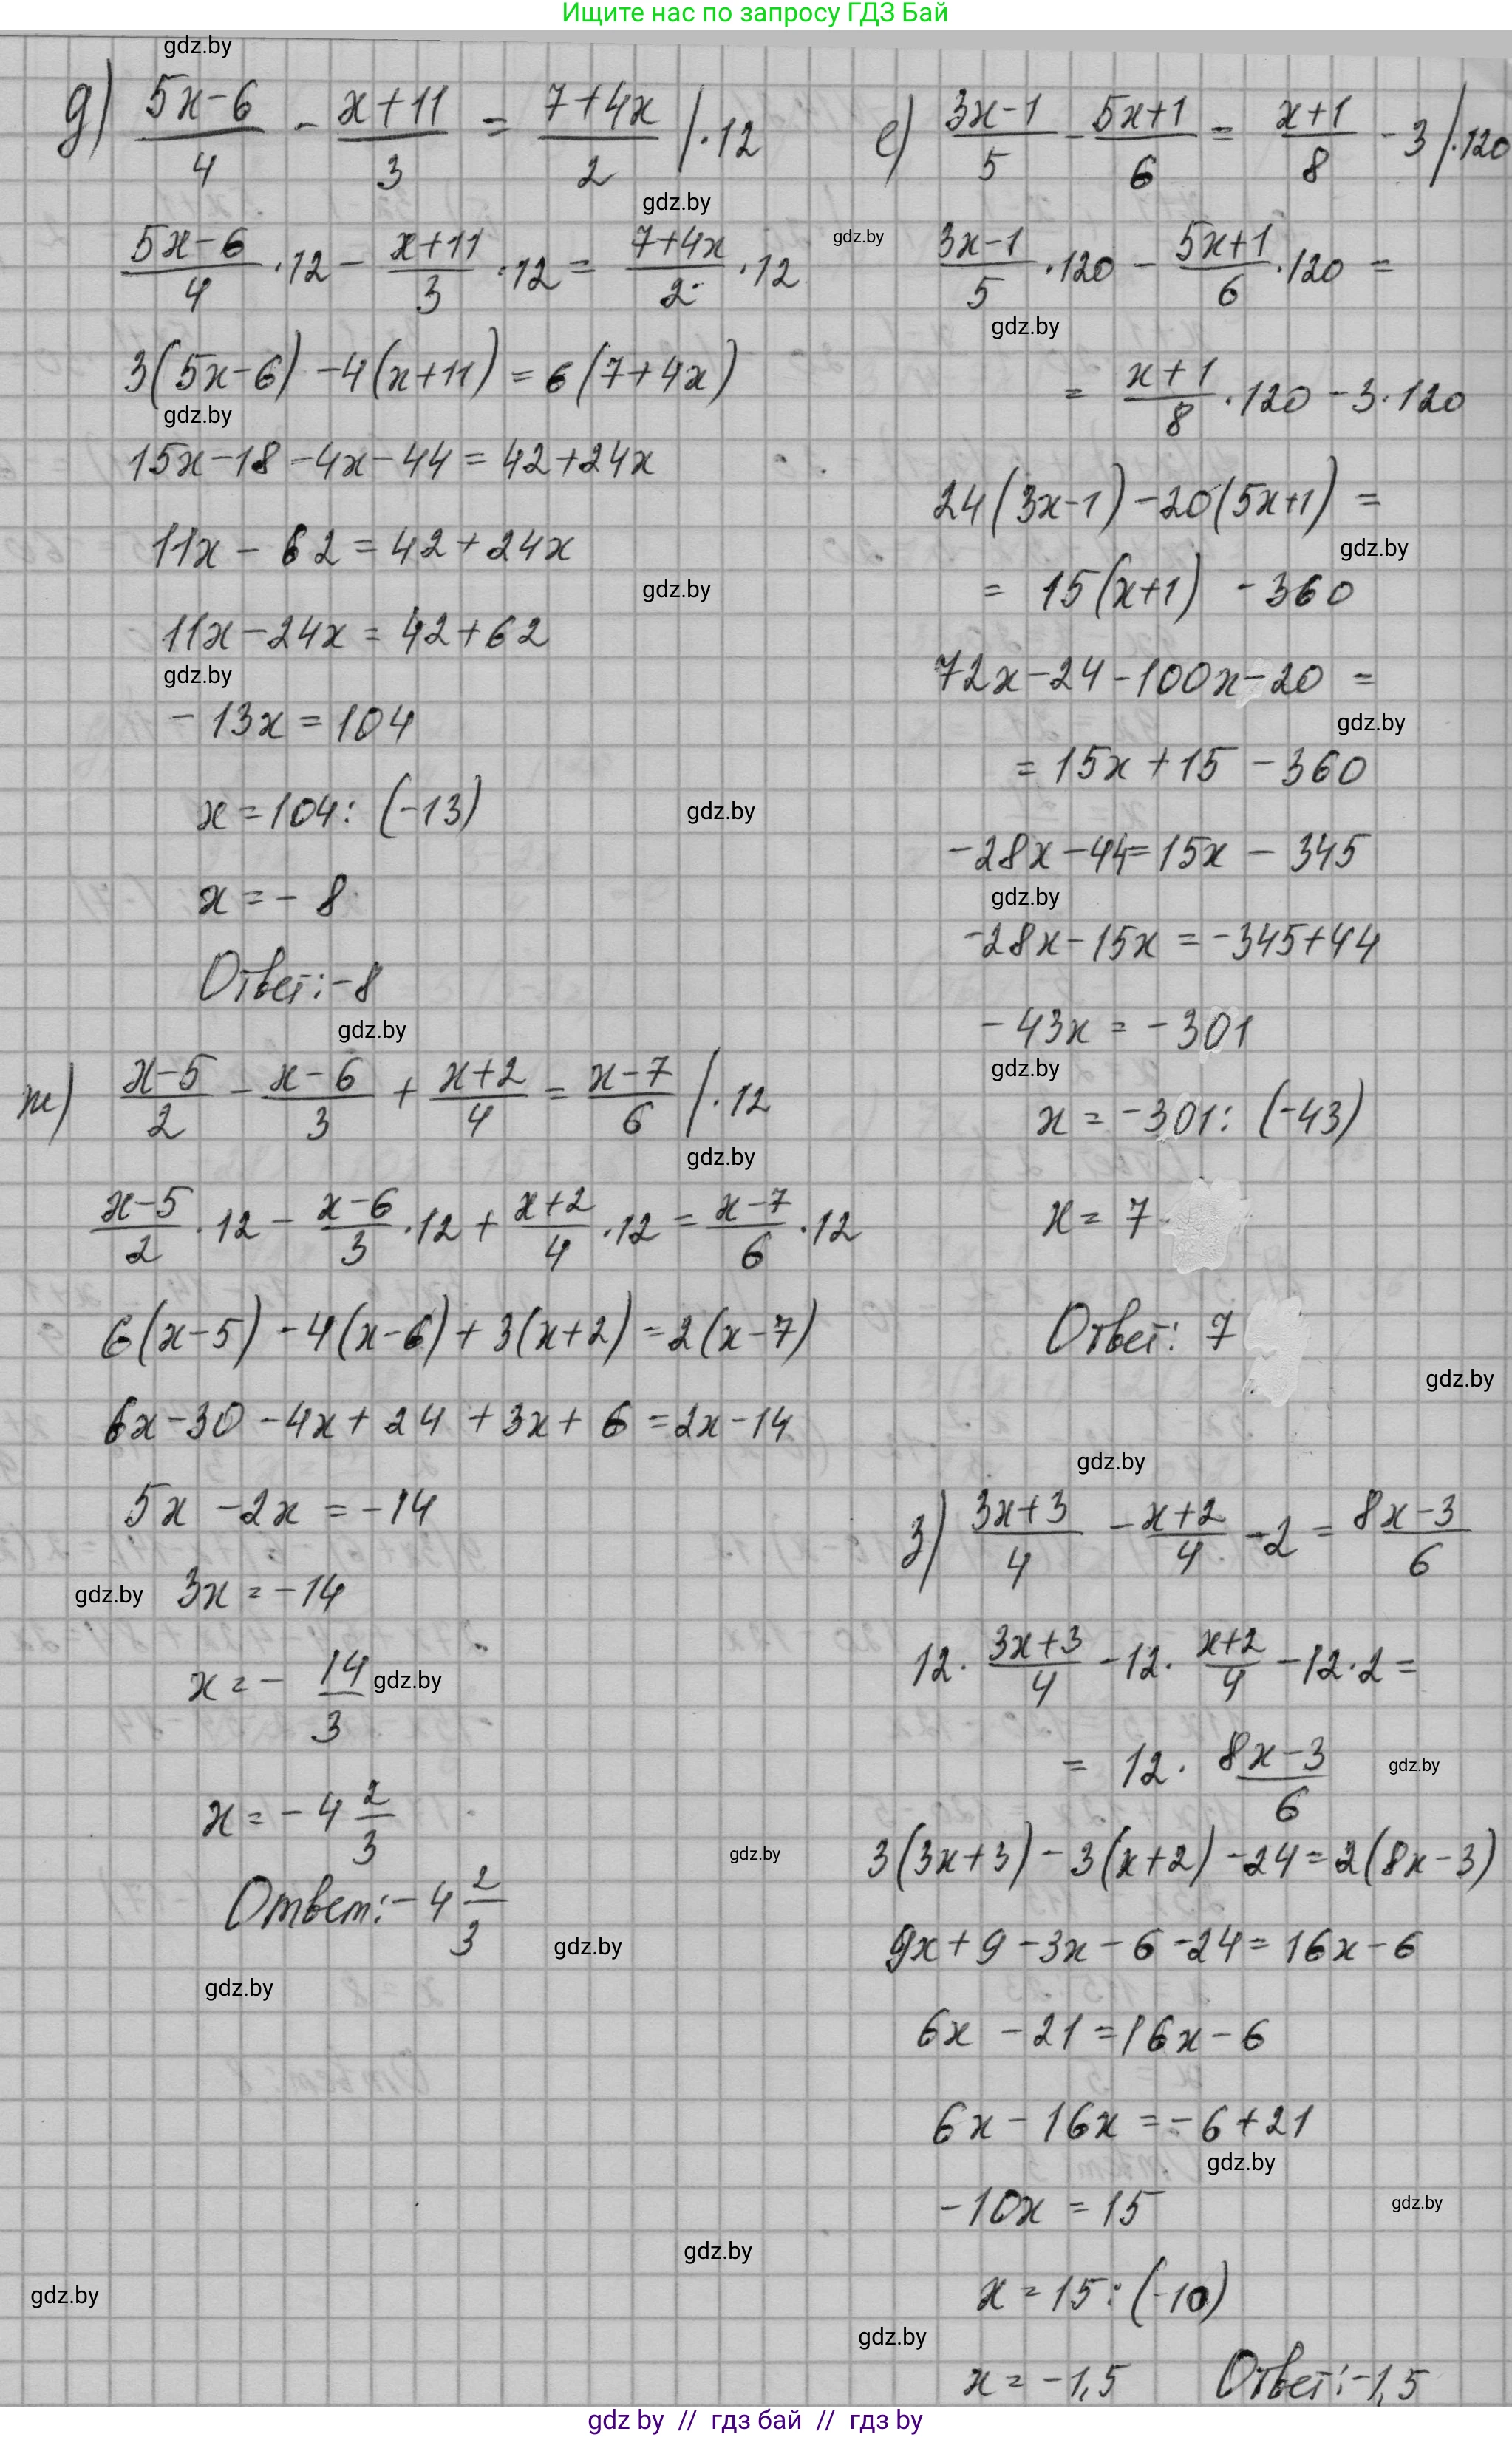 Ищите нас по запросу ГДЗ Бай
gdz.by
д) (5x-6)/4 - (x+11)/3 = (7+4x)/2 |·12
gdz.by
(5x-6)/4 ·12 - (x+11)/3 ·12 = (7+4x)/2 ·12
3(5x-6) -4(x+11) = 6(7+4x)
gdz.by
15x-18-4x-44=42+24x
11x - 62=42+24x
gdz.by
11x-24x=42+62
gdz.by
-13x=104
x=104:(-13)
gdz.by
x=-8
Ответ:-8
gdz.by
е) (3x-1)/5 - (5x+1)/6 = (x+1)/8 - 3 |·120
gdz.by
(3x-1)/5 ·120 - (5x+1)/6 ·120 =
gdz.by
= (x+1)/8 ·120 -3·120
24(3x-1)-20(5x+1) =
gdz.by
= 15(x+1) -360
72x-24-100x-20 =
gdz.by
=15x+15-360
-28x-44=15x-345
gdz.by
-28x-15x=-345+44
-43x=-301
gdz.by
x=-301:(-43)
x=7
Ответ: 7
gdz.by
ж) (x-5)/2 - (x-6)/3 + (x+2)/4 = (x-7)/6 |·12
gdz.by
(x-5)/2 ·12 - (x-6)/3 ·12 + (x+2)/4 ·12 = (x-7)/6 ·12
6(x-5)-4(x-6)+3(x+2)=2(x-7)
6x-30-4x+24+3x+6=2x-14
5x-2x=-14
gdz.by
3x=-14
x=- 14/3
gdz.by
x=-4 2/3
Ответ:-4 2/3
gdz.by
gdz.by
gdz.by
з) (3x+3)/4 - (x+2)/4 -2 = (8x-3)/6
12· (3x+3)/4 -12· (x+2)/4 -12·2 =
= 12· (8x-3)/6
gdz.by
gdz.by
3(3x+3)-3(x+2)-24=2(8x-3)
9x+9-3x-6-24=16x-6
6x-21=16x-6
6x-16x=-6+21
gdz.by
-10x=15
gdz.by
gdz.by
x=15:(-10)
gdz.by
gdz.by
x=-1,5 Ответ:-1,5
gdz by // гдз бай // гдз by